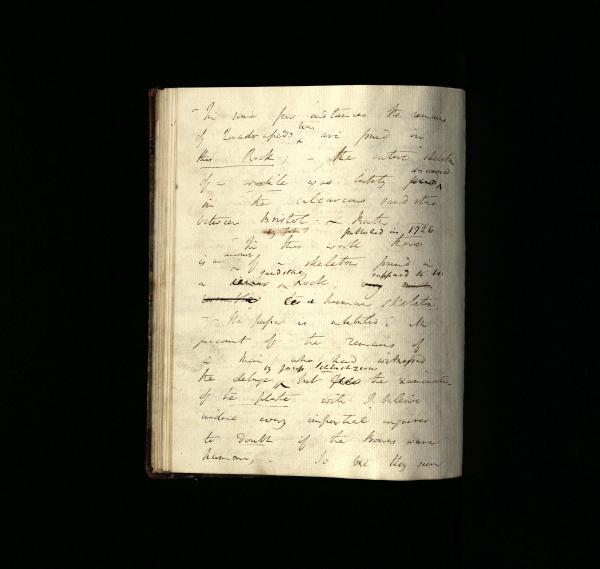 - In some few instances the remains
of Quadrupeds too are found in
this Rock; - the entire skeleton
of a was lately discovered
in the calcareous sand stone
between Bristol & Bath
published in 1726
- In this work there
is an account
of a skeleton found in
a sandstone Rock, supposed to be
a human skeleton
- The paper is entitled: An
account of the remains of
a Man who had witnessed
the deluge, by James Scheuchzerus
but the examination
of the plate will I believe
induce every impartial enquirer
to doubt if the bones were
human; - To me they seem